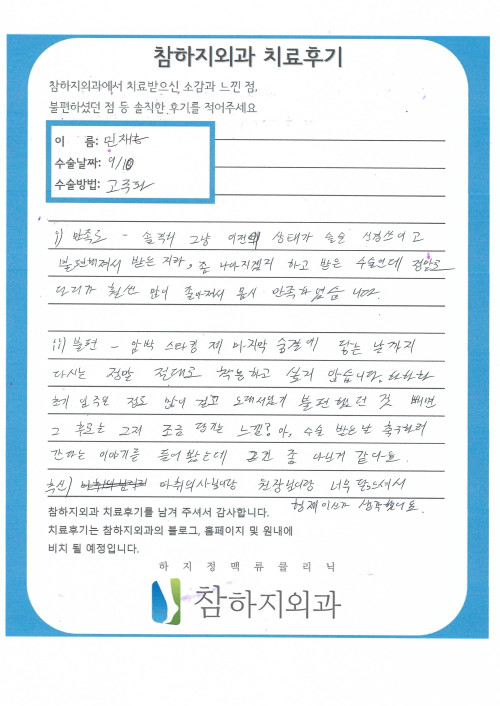 참하지외과 치료후기
참하지외과에서 치료받으신 소감과 느낀 점,
불편하셨던 점 등 솔직한 후기를 적어주세요
이 름: 민재
수술날짜: 9/10
수술방법: 고주파
i) 만족도 - 솔직히 그냥 이전의 상태가 신경쓰이고
불편해져서 받은 지라, 좀 나아지겠지 하고 받은 수술인데 정말로
다리가 훨씬 많이 좋아져서 몹시 만족하였습니다.
ii) 불편 - 압박 스타킹 제 마지막 숨결에 닿는 날까지
다시는 정말 절대로 착용하고 싶지 않습니다. 하하하
초기 압박용 정도 많이 걷고 오래서있기 불편했던 것 빼면
그 후로는 그저 조금 당기는 느낌 수술 받은 날 축구하러
간다는 이야기를 들어봤는데 그건 좀 아닌거 같다.
추신) 마취의사님이랑 원장님이랑 너무 닮으셔서
형제이신가 생각했다.
참하지외과 치료후기를 남겨 주셔서 감사합니다.
치료후기는 참하지외과의 블로그, 홈페이지 및 원내에
비치 될 예정입니다.
하지정맥류클리닉
참하지외과